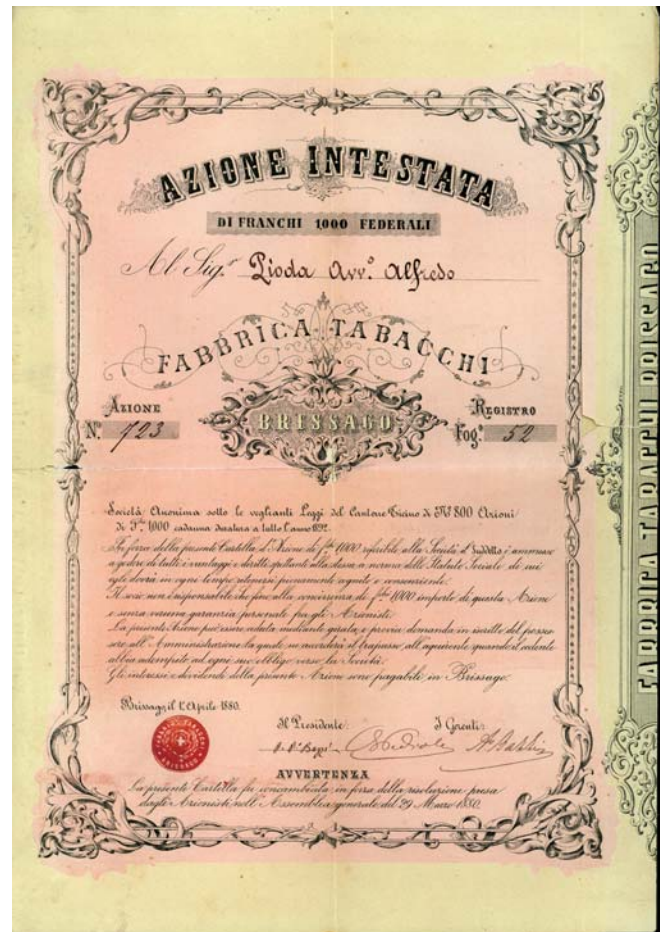 AZIONE INTESTATA
DI FRANCHI 1000 FEDERALI
Al Sig.r Pioda Avv.o Alfredo
FABBRICA TABACCHI
BRISSAGO
AZIONE
N.o 723
REGISTRO
Fog.o 52
Società Anonima sotto le veglianti Leggi del Cantone Ticino di No 800 Azioni
di F.chi 1000 cadauna duratura a tutto l'anno 1892.
In forza della presente Cartella d'Azione di f.chi 1000 riferibile alla Società il suddetto è ammesso
a godere di tutti i vantaggi e diritti spettanti alla stessa a norma dello Statuto Sociale di cui
egli dovrà in ogni tempo ritenersi pienamente agnito e consenziente.
Il socio non è risponsabile che fino alla concorrenza di f.chi 1000 importo di questa Azione
e senza veruna garanzia personale fra gli Azionisti.
La presente Azione può essere ceduta mediante girata, e previa domanda in iscritto del posses-
sore all'Amministrazione la quale ne accorderà il trapasso all'aquirente quando il cedente
abbia adempito ad ogni suo obbligo verso la Società.
Gli interessi e dividendi della presente Azione sono pagabili in Brissago.
Brissago, il 1.o Aprile 1880.
Il Presidente:
I Gerenti:
AVVERTENZA
La presente Cartella fu concambiata in forza della risoluzione presa
dagli Azionisti nell'Assemblea generale del 29 Marzo 1880.
FABBRICA TABACCHI BRISSAGO